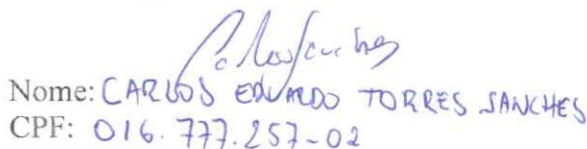 Nome: CARLOS EDUARDO TORRES SANCHES
CPF: 016.777.257-02